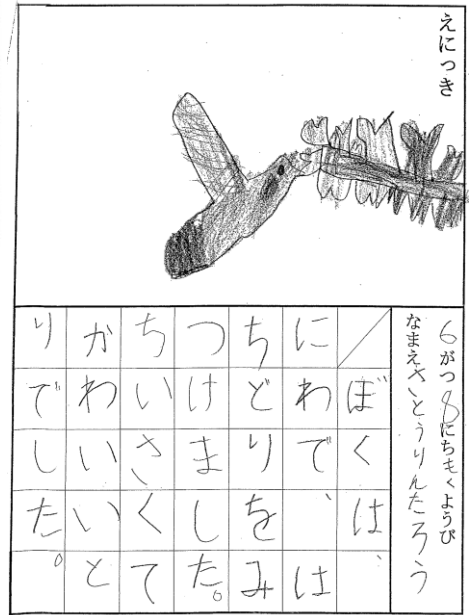 えにっき
6がつ8にちもくようび
なまえさとうりんたろう
ぼくは、
にわで、は
ちどりをみ
つけました。
ちいさくて
かわいいと
りでした。